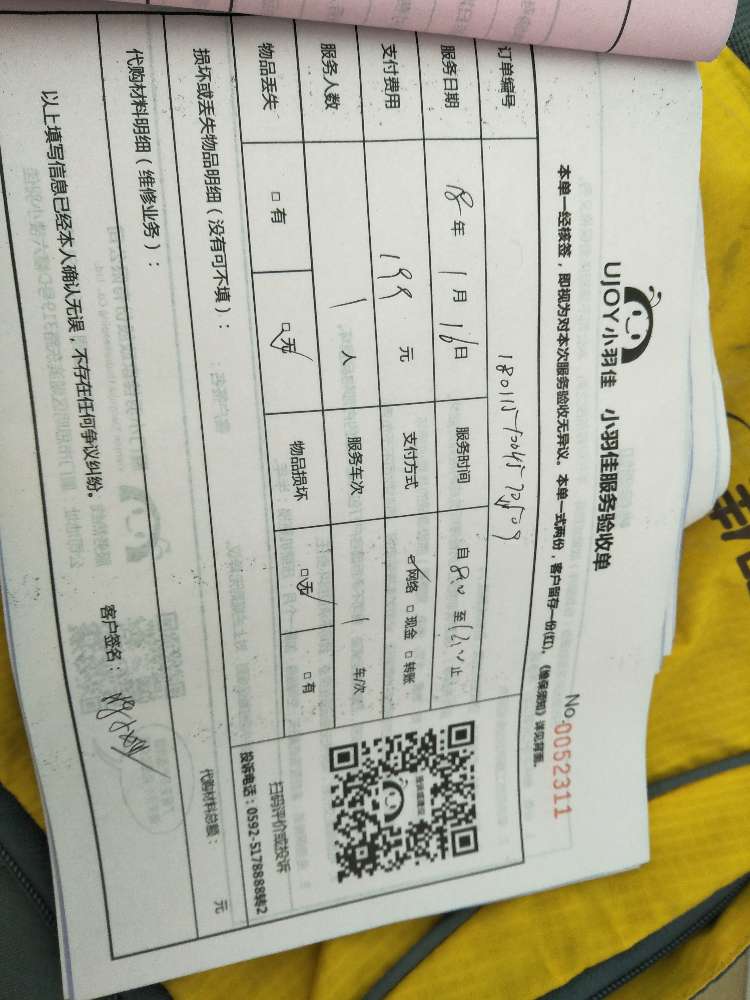 UJOY小羽佳 小羽佳服务验收单
No.0052311
本单一经核签,即视为对本次服务验收无异议。本单一式两份,客户留存一份(红)。《维保须知》详见背面。
订单编号
服务日期 18年 1月 16日 服务时间 自 至 止
支付费用 199元 支付方式 ☑网络 □现金 □转账
服务人数 1人 服务车次 1车/次
物品丢失 □有 ☑无 物品损坏 ☑无 □有
扫码评价或投诉
投诉电话:0592-5178888转2
损坏或丢失物品明细(没有可不填):
代购材料明细(维修业务): 代购材料总额: 元
以上填写信息已经本人确认无误,不存在任何争议纠纷。 客户签名: